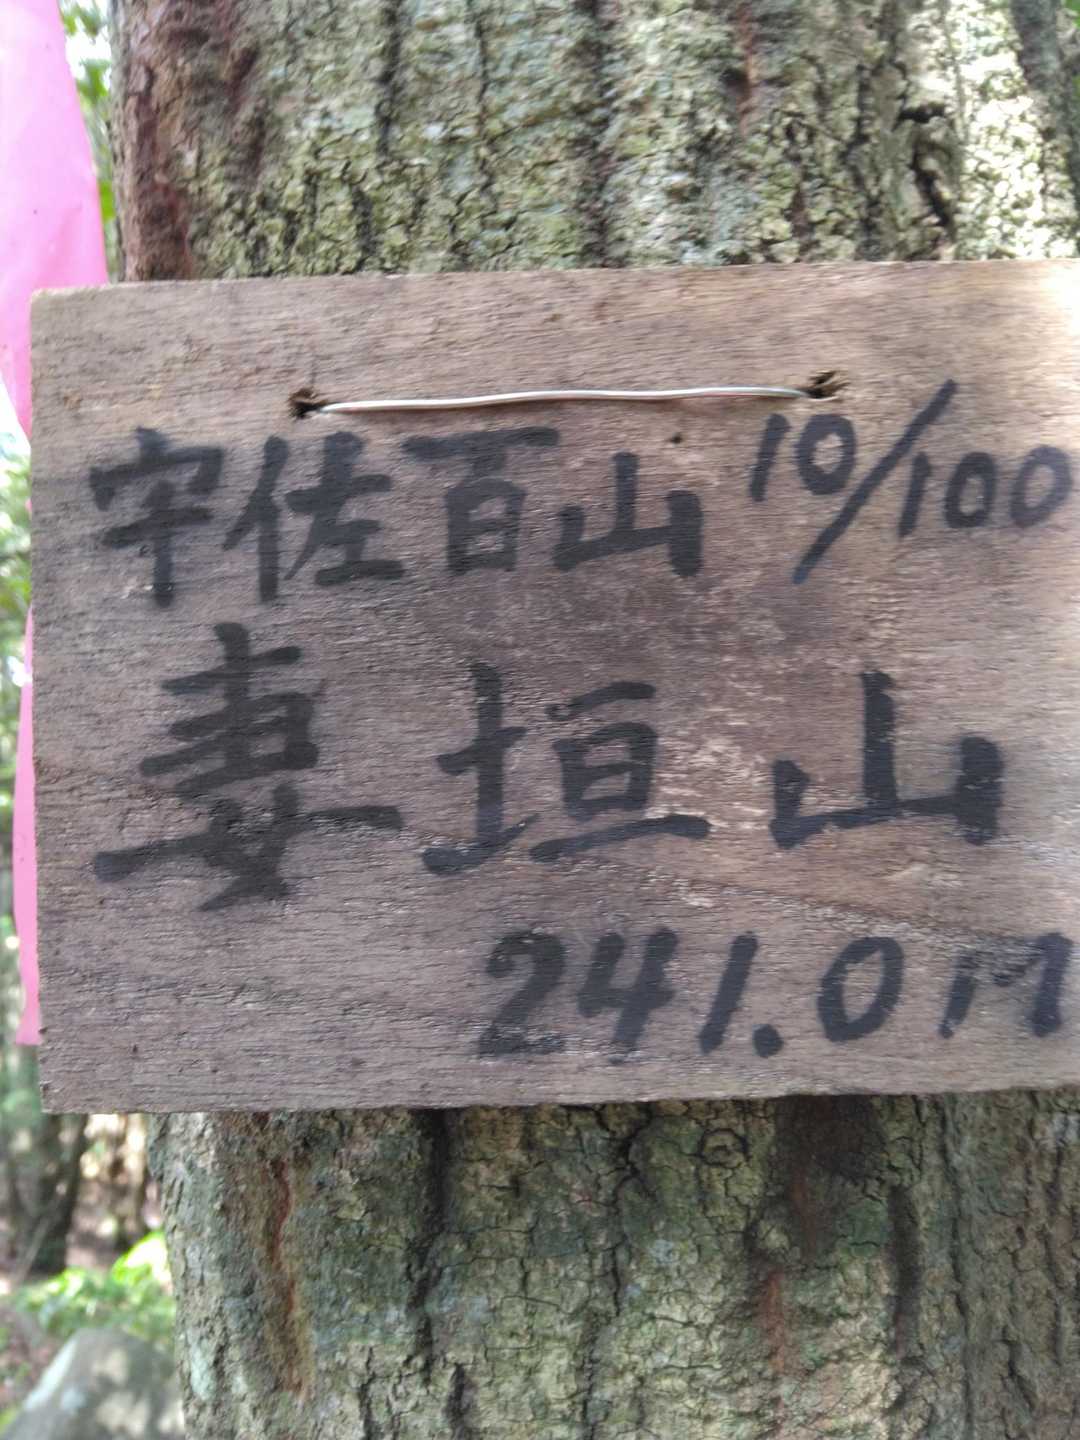 宇佐百山 10/100
妻垣山
241.0M